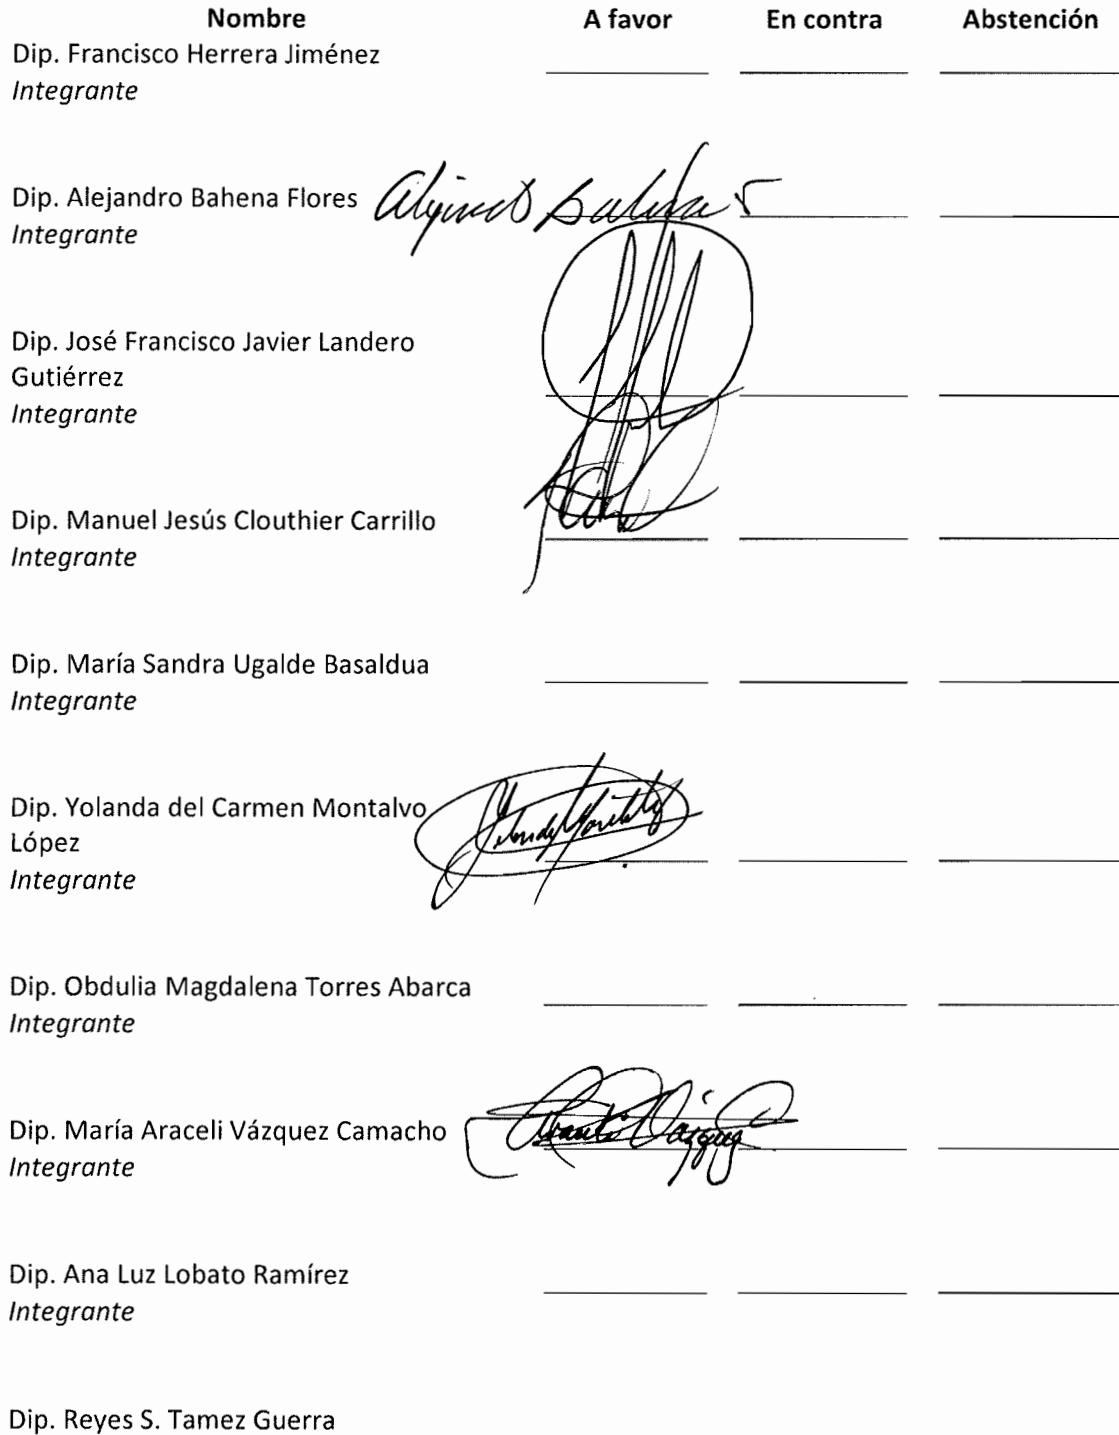 Nombre A favor En contra Abstención
Dip. Francisco Herrera Jiménez
Integrante
Dip. Alejandro Bahena Flores
Integrante
Dip. José Francisco Javier Landero
Gutiérrez
Integrante
Dip. Manuel Jesús Clouthier Carrillo
Integrante
Dip. María Sandra Ugalde Basaldua
Integrante
Dip. Yolanda del Carmen Montalvo
López
Integrante
Dip. Obdulia Magdalena Torres Abarca
Integrante
Dip. María Araceli Vázquez Camacho
Integrante
Dip. Ana Luz Lobato Ramírez
Integrante
Dip. Reyes S. Tamez Guerra